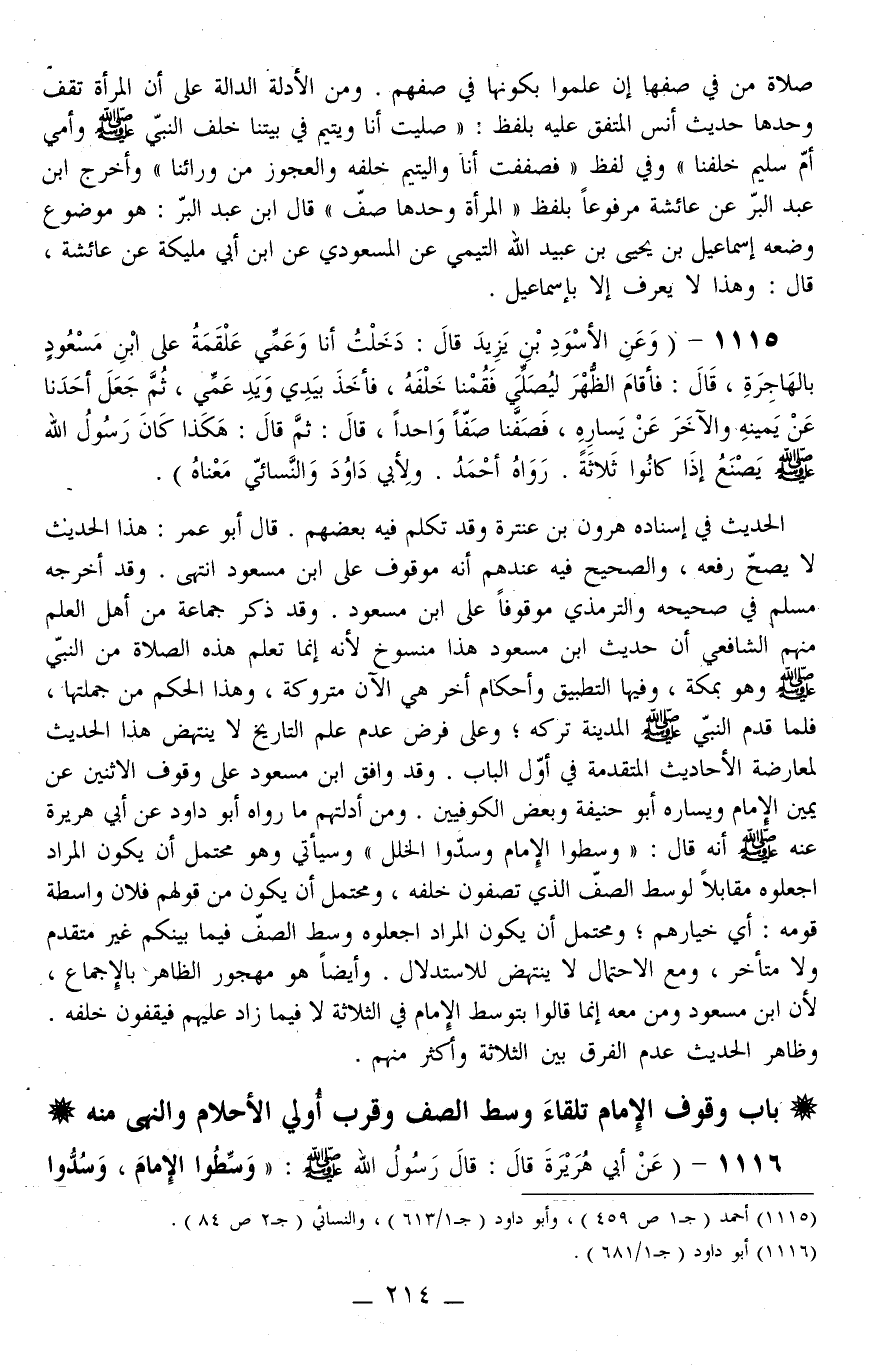 صلاة من في صفها إن علموا بكونها في صفهم . ومن الأدلة الدالة على أن المرأة تقف
وحدها حديث أنس المتفق عليه بلفظ : « صليت أنا ويتيم في بيتنا خلف النبيّ ﷺ وأمي
أمّ سليم خلفنا » وفي لفظ « فصففت أنا واليتيم خلفه والعجوز من ورائنا » وأخرج ابن
عبد البرّ عن عائشة مرفوعاً بلفظ « المرأة وحدها صفّ » قال ابن عبد البرّ : هو موضوع
وضعه إسماعيل بن يحيى بن عبيد الله التيمي عن المسعودي عن ابن أبي مليكة عن عائشة ،
قال : وهذا لا يعرف إلا بإسماعيل .
١١١٥ – ( وَعَنِ الأسْوَدِ بْنِ يَزِيدَ قالَ : دَخَلْتُ أنا وَعَمِّي عَلْقَمَةُ على ابْنِ مَسْعُودٍ
بالهَاجِرَةِ ، قَالَ : فأقامَ الظُّهْرَ ليُصَلِّي فَقُمْنا خَلْفَهُ ، فأخَذَ بيَدِي وَيَدِ عَمِّي ، ثُمَّ جَعَلَ أحَدَنا
عَنْ يَمينهِ والآخَرَ عَنْ يَسارِهِ ، فَصَفَّنا صَفّاً وَاحداً ، قالَ : ثمَّ قالَ : هَكَذا كَانَ رَسُولُ الله
ﷺ يَصْنَعُ إذَا كانُوا ثَلاثَةً . رَوَاهُ أحْمَدُ . ولِأبي دَاوُدَ وَالنَّسائيّ مَعْناهُ ) .
الحديث في إسناده هرون بن عنترة وقد تكلم فيه بعضهم . قال أبو عمر : هذا الحديث
لا يصحّ رفعه ، والصحيح فيه عندهم أنه موقوف على ابن مسعود انتهى . وقد أخرجه
مسلم في صحيحه والترمذي موقوفاً على ابن مسعود . وقد ذكر جماعة من أهل العلم
منهم الشافعي أن حديث ابن مسعود هذا منسوخ لأنه إنما تعلم هذه الصلاة من النبيّ
ﷺ وهو بمكة ، وفيها التطبيق وأحكام أخر هي الآن متروكة ، وهذا الحكم من جملتها ،
فلما قدم النبيّ ﷺ المدينة تركه ؛ وعلى فرض عدم علم التاريخ لا ينتهض هذا الحديث
لمعارضة الأحاديث المتقدمة في أوّل الباب . وقد وافق ابن مسعود على وقوف الاثنين عن
يمين الإمام ويساره أبو حنيفة وبعض الكوفيين . ومن أدلتهم ما رواه أبو داود عن أبي هريرة
عنه ﷺ أنه قال : « وسطوا الإمام وسدّوا الخلل » وسيأتي وهو محتمل أن يكون المراد
اجعلوه مقابلاً لوسط الصفّ الذي تصفون خلفه ، ومحتمل أن يكون من قولهم فلان واسطة
قومه : أي خيارهم ؛ ومحتمل أن يكون المراد اجعلوه وسط الصفّ فيما بينكم غير متقدم
ولا متأخر ، ومع الاحتمال لا ينتهض للاستدلال . وأيضاً هو مهجور الظاهر بالإجماع ،
لأن ابن مسعود ومن معه إنما قالوا بتوسط الإمام في الثلاثة لا فيما زاد عليهم فيقفون خلفه .
وظاهر الحديث عدم الفرق بين الثلاثة وأكثر منهم .
باب وقوف الإمام تلقاءَ وسط الصف وقرب أُولي الأحلام والنهى منه
١١١٦ – ( عَنْ أبي هُرَيْرَةَ قالَ : قالَ رَسُولُ الله ﷺ : « وَسِّطُوا الإمامَ ، وَسُدُّوا
(١١١٥) أحمد ( جـ١ ص ٤٥٩ ) ، وأبو داود ( جـ١/٦١٣ ) ، والنسائي ( جـ٢ ص ٨٤ ) .
(١١١٦) أبو داود ( جـ١/٦٨١ ) .
_ ٢١٤ _